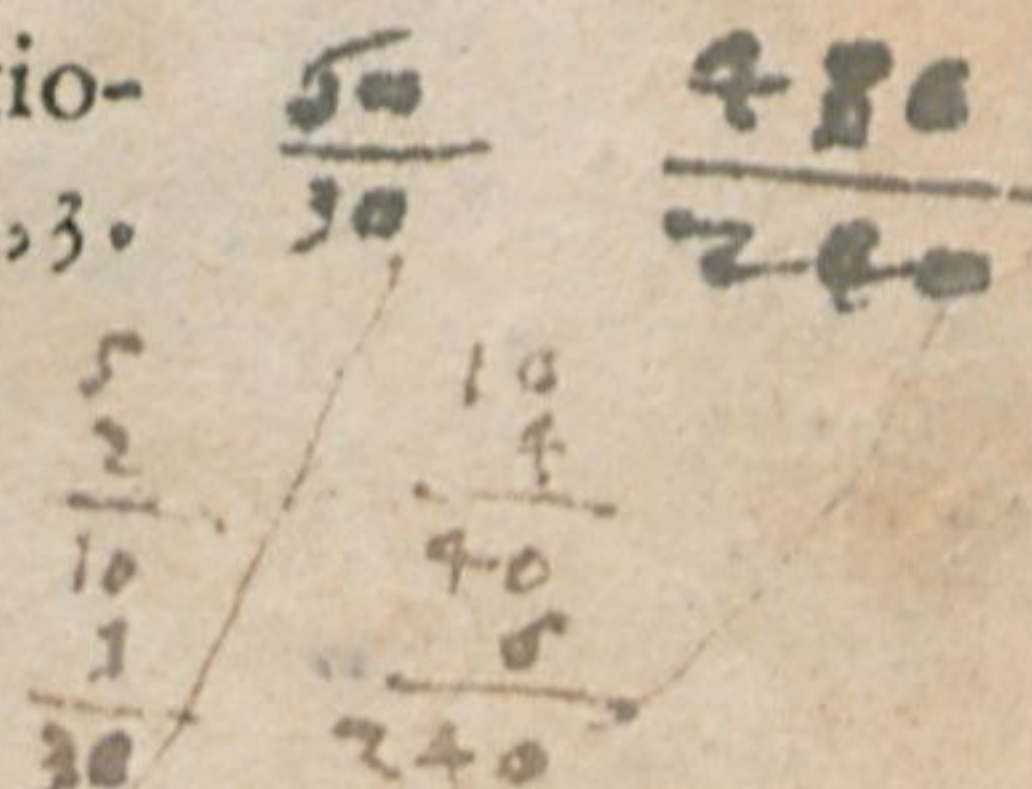 io-
,3.
50
30
480
240
5
2
10
3
30
10
4
40
6
240